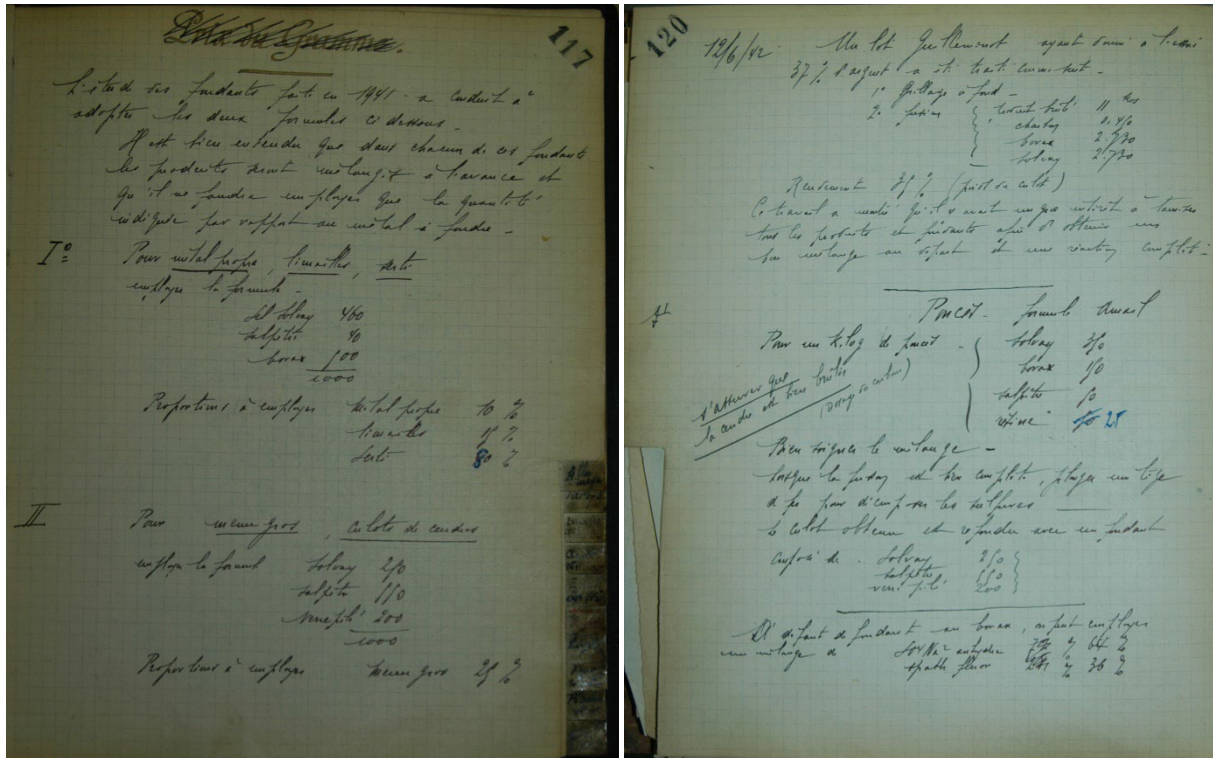 117
L'étude des fondants faite en 1941 a conduit à
adopter les deux formules ci dessous.
Il est bien entendu que dans chacun de ces fondants
les produits seront mélangés à l'avance et
qu'il ne faudra employer que la quantité
indiquée par rapport au métal à fondre -
I°
Pour métal propre, limailles, serti
employer la formule -
Sel Solvay 460
salpêtre 40
borax 500
1000
Proportions à employer métal propre 10 %
limailles 15 %
serti 80 %
II
Pour menu gros, culots de cendres
employer la formule Solvay 250
salpêtre 550
verre pilé 200
1000
Proportions à employer menu gros 25 %
120
12/6/42 Un lot Guilleminot ayant donné à l'essai
37 % d'argent a été traité comme suit -
1° Grillage à fond -
2° fusion
11 kos
charbon 0.450
borax 2.730
solvay 2.730
Rendement 35 % (poids du culot)
Ce travail a montré qu'il y avait un gros intérêt à tamiser
tous les produits et fondants afin d'obtenir un
bon mélange au départ et une réaction complète -
formule
Pour un Kilog de
solvay 350
borax 150
salpêtre 50
résine 25
s'assurer que
la cendre est bien brûlée
Bien soigner le mélange -
Lorsque la fusion est bien complète plonger une tige
de fer pour décomposer les sulfures
Le culot obtenu est refondu avec un fondant
composé de Solvay 250
salpêtre 550
verre pilé 200
A défaut de fondant au borax, on peut employer
un mélange de SO4Na2 anhydre % 64 %
spath fluor % 36 %